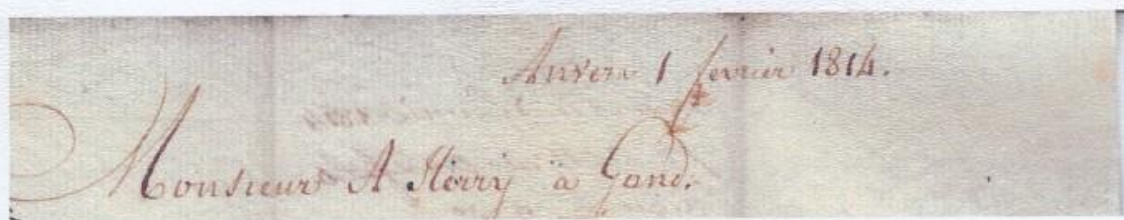 Anvers 1 fevrier 1814.
Monsieur A Herry à Gand.